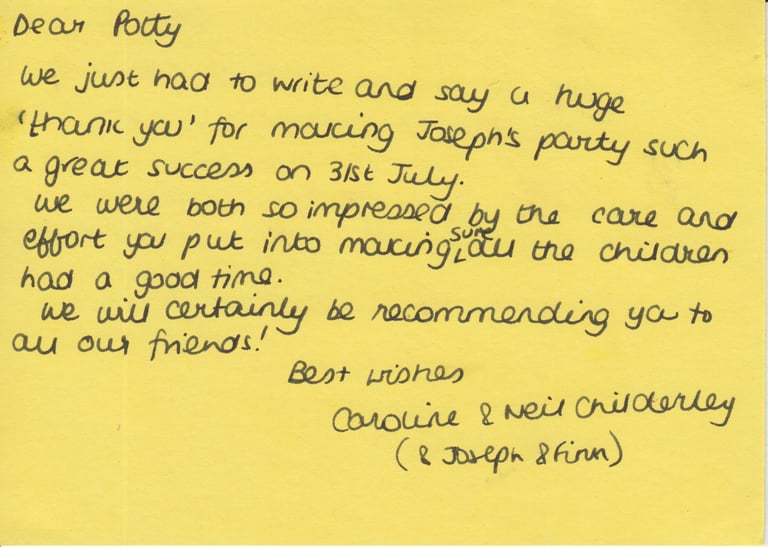 Dear Potty
We just had to write and say a huge
'thank you' for making Joseph's party such
a great success on 31st July.
We were both so impressed by the care and
effort you put into making sure all the children
had a good time.
We will certainly be recommending you to
all our friends!
Best wishes
Caroline & Neil Childerley
(& Joseph & Finn)